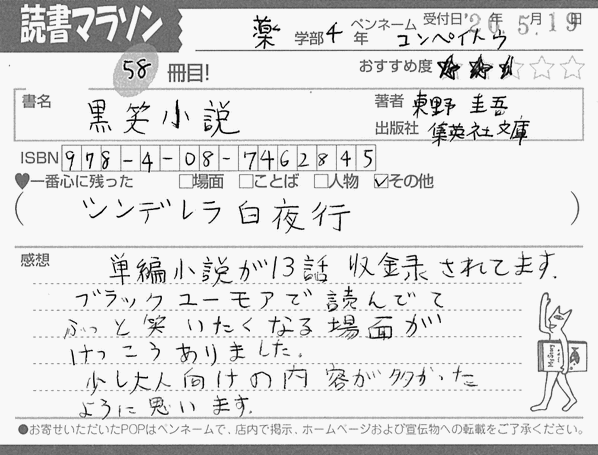 読書マラソン
薬 学部 4 年 ペンネーム コンペイトウ 受付日 '20年 5月 19日
58 冊目! おすすめ度 ★★★☆☆
書名 黒笑小説 著者 東野 圭吾
出版社 集英社文庫
ISBN 978-4-08-7462845
♥一番心に残った □場面 □ことば □人物 ☑その他
( シンデレラ白夜行 )
感想 単編小説が13話 収録されてます.
ブラックユーモアで読んでて
ふっと笑いたくなる場面が
けっこうありました.
少し大人向けの内容が多かった
ように思います.
●お寄せいただいたPOPはペンネームで、店内で掲示、ホームページおよび宣伝物への転載をご了承ください。